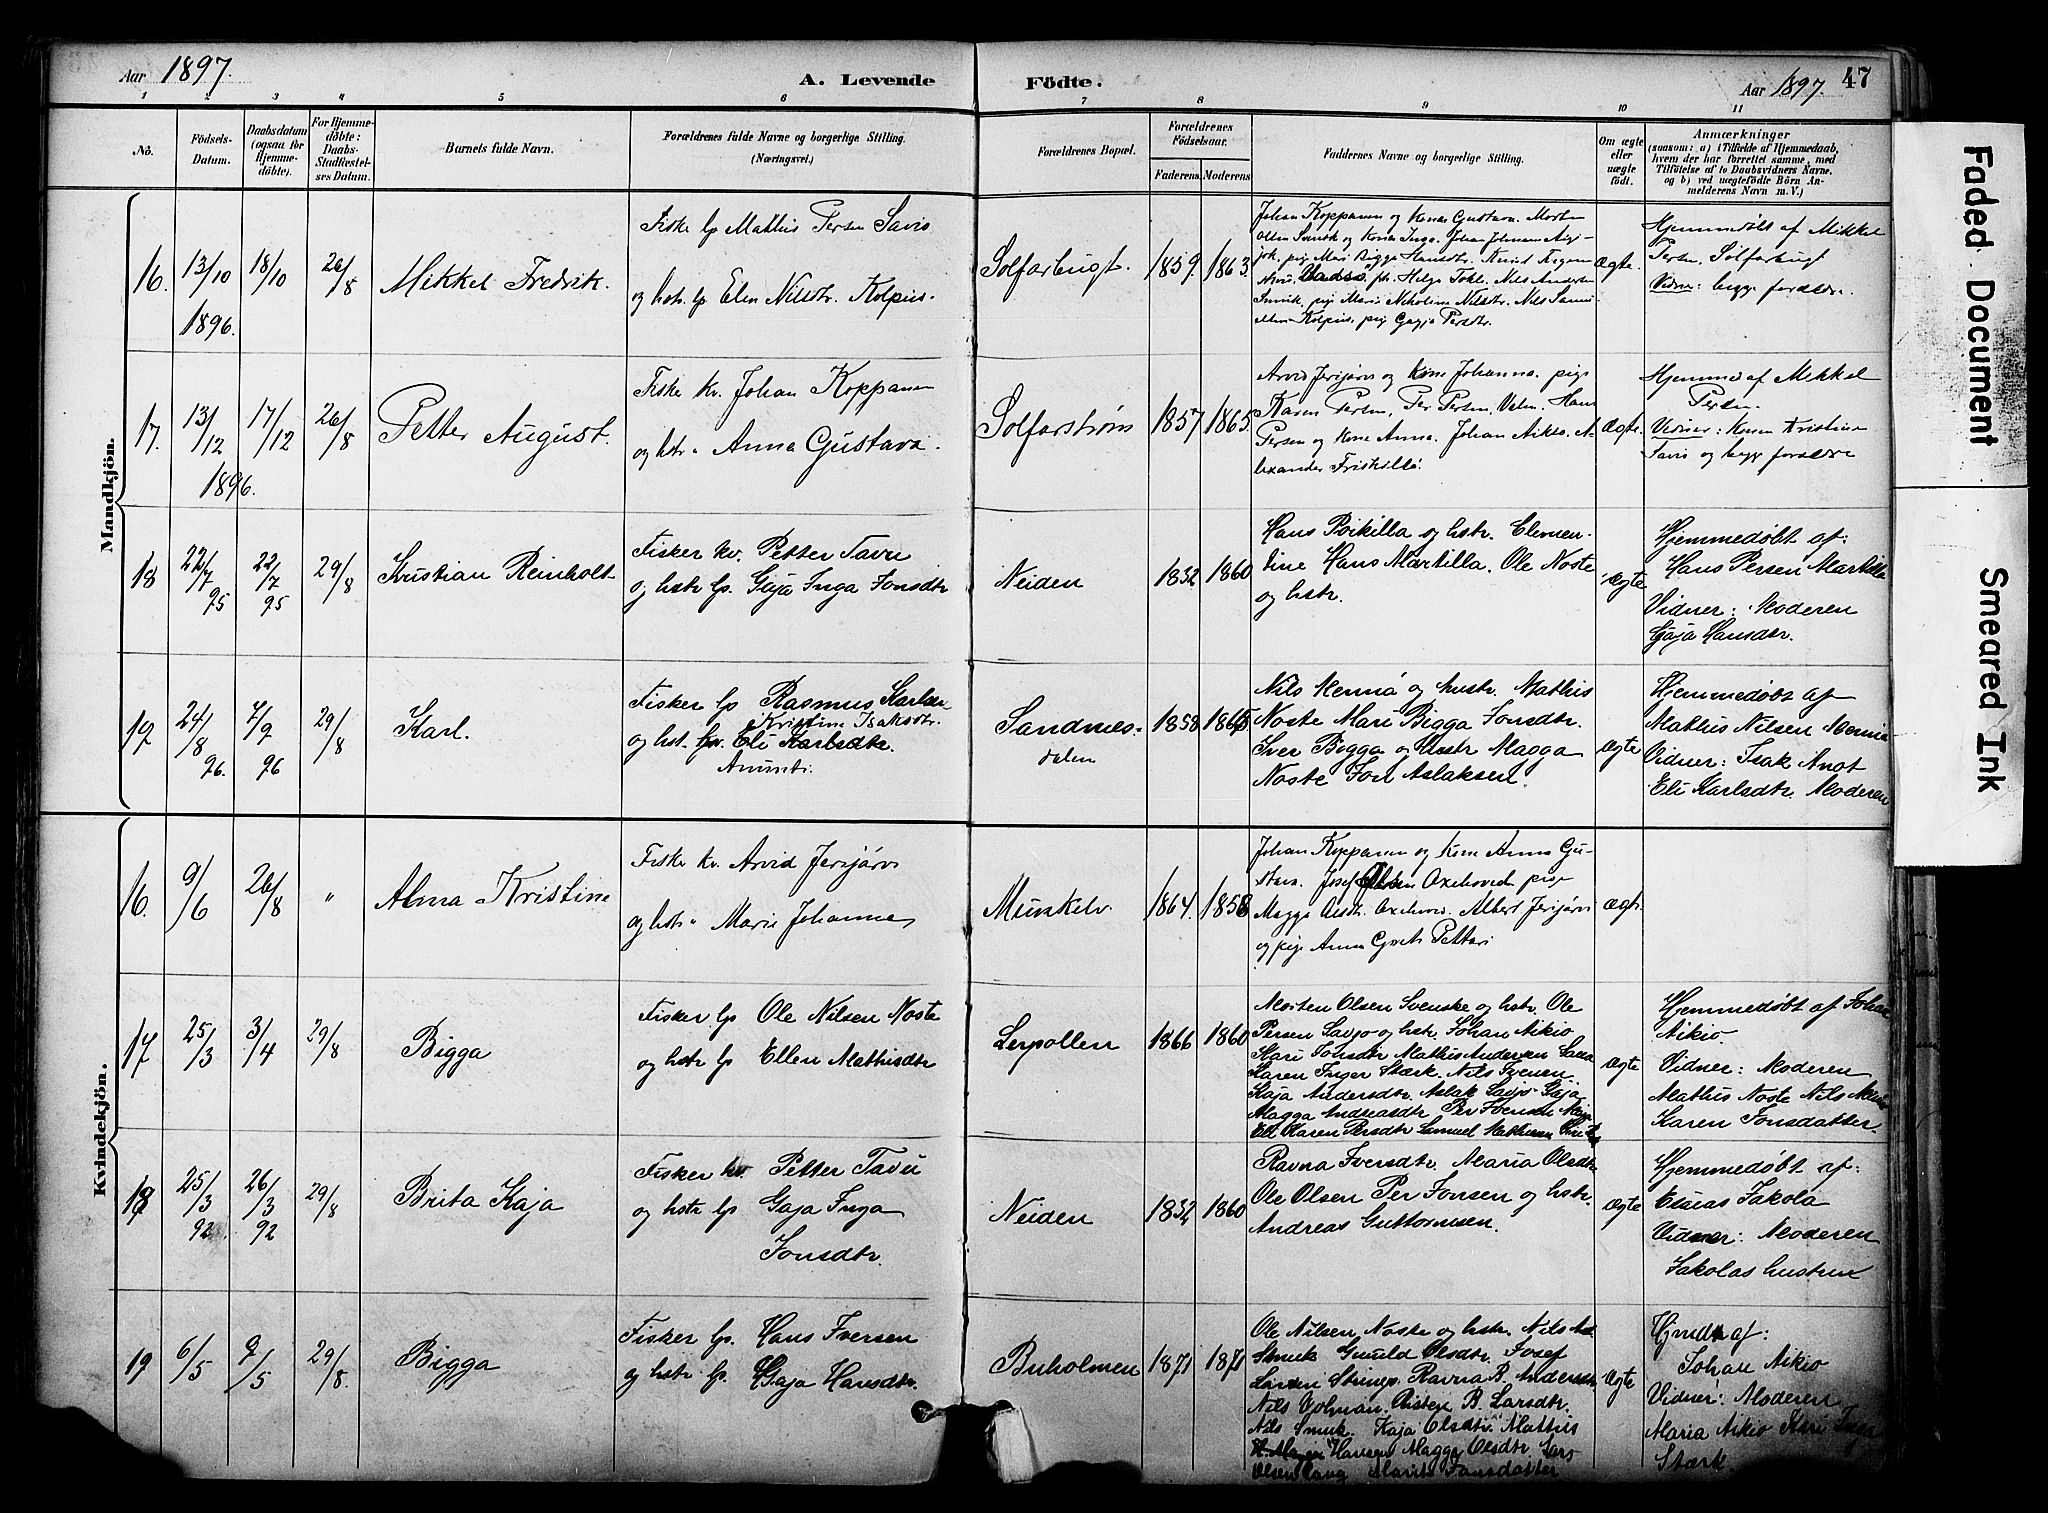 Aar 1897.
A. Levende Födte.
Aar 1897. 47
1 2 3 4 5 6 7 8 9 10 11
No.
Födsels-
Datum.
Daabsdatum
(ogsaa for
Hjemme-
döbte).
For Hjemme-
döbte:
Daabs-
Stadfæstel-
ses Datum.
Barnets fulde Navn.
Forældrenes fulde Navne og borgerlige Stilling.
(Næringsvei.)
Forældrenes Bopæl.
Forældrenes
Födselsaar.
Faderens. Moderens.
Faddernes Navne og borgerlige Stilling.
Om ægte
eller
uægte
födt.
Anmærkninger
(saasom: a) i Tilfælde af Hjemmedaab,
hvem der har forrettet samme, med
Tilföielse af to Daabsvidners Navne,
og b) ved uægtefödte Börn An-
melderens Navn m. V.)
Mandkjön.
16. 13/10 1896. 18/10 26/8
Mikkel Fredrik.
Fisker lp Mathis Persen Savio
og hstr. lp. Elen Nilsdtr. Kolpus.
Solfarbugt.
1859. 1863
Johan Koppanen og Kone Gustava. Morten
Olsen og Kone Inga. Johan Johnsen
pige Mari Bigga Hansdtr.
Vadsö. Helge Nils Andersen
pig Marie Nikoline Nilsdtr. Nils
Kolpus. pig Gagja Persdtr.
Ægte.
Hjemmedøbt af Mikkel
Persen, Solfarbugt
Vidner: begge forældre.
17. 13/12 1896. 17/12 26/8
Petter August.
Fisker kv. Johan Koppanen
og hstr. " Anna Gustava.
Solfarstrøm
1857 1865
Arvid Jerijärvi og Kone Johanna. pige
Karen Persen, Per Persen, Hans
Persen og Kone Anna. Johan Aikio. A-
lexander
Ægte.
Hjemmed. af Mikkel
Persen.
Vidner: Konen Kristine
Savio og begge forældre
18 22/7 95 22/7 95 29/8
Kristian Reinholt
Fisker kv. Petter Tavu
og hstr lp. Gaja Inga Jonsdtr
Neiden
1832 1860
Hans Poikilla og hstr. Clemen-
tine Hans Martilla. Ole Noste
og hstr.
Ægte
Hjemmedøbt af:
Hans Persen Martilla
Vidner: Moderen
Gaja Hansdtr.
19 24/8 96. 4/9 96 29/8
Karl.
Fisker lp Rasmus Karlsen
Kristine Isaksdtr.
og hst. kv. Eli Karlsdtr.
Anunti.
Sandnes-
dalen
1858 1865
Nils Menna og hustr. Mathis
Noste Mari Bigga Jonsdtr.
Iver Bigga og hustr Magga
Noste Jon Aslaksen.
Ægte
Hjemmedøbt af
Mathis Nilsen Menna
Vidner: Isak Anot
Eli Karlsdtr. Moderen
Kvindekjön.
16. 9/6 26/8 "
Alma Kristine
Fisker kv. Arvid Jerijärvi
og hstr " Marie Johanne
Munkelv.
1864. 1858
Johan Koppanen og Kone Anna Gu-
stava. Josef Olsen Axehoved pige
Magga Olsdtr. Axehoved. Albert Jerijärvi
og pige Anna Greth Petteri
Ægte.
17 25/3 3/4 29/8
Bigga
Fisker lp Ole Nilsen Noste
og hstr lp Ellen Mathisdtr
Lerpollen
1866 1860
Morten Olsen Svenske og hstr. Ole
Persen Savjo og hstr. Johan Aikio
Kari Jonsdtr Mathis Andersen
Karen Inger Stærk. Nils Iversen
Kaja Andersdtr. Aslak Savjo Gaja
Magga Andreasdtr Per Iversen
Eli Karen Persdtr Samuel Mathisen
Ægte
Hjemmedøbt af Johan
Aikio.
Vidner: Moderen
Mathis Noste Nils Menna
Karen Jonsdatter.
18 25/3 92 26/3 92 29/8
Brita Kaja
Fisker kv Petter Tavu
og hstr lp Gaja Inga
Jonsdtr.
Neiden
1832 1860
Ravna Iversdtr. Maria Olsdtr
Ole Olsen Per Jonsen og hstr.
Andreas Guttormsen.
Ægte
Hjemmedøbt af:
Esaias Jakola
Vidner: Moderen
Jakolas hustru
19 6/5 9/5 29/8.
Bigga
Fisker lp. Hans Iversen
og hstr lp. Gaja Hansdtr.
Buholmen
1871 1871
Ole Nilsen Noste og hstr. Nils
Smuk Gunild Olsdtr. Josef
Larsen Ravna B. Andersdtr
Nils Volman. B. Larsdtr.
Nils Smuk. Kaja Olsdtr. Mathis
Hansen Magga Olsdtr. Lars
Olsen Marit Jonsdatter
Ægte
Hjmdt af:
Johan Aikio
Vidner: Moderen
Maria Aikio Kari Inga
Stærk.
Faded Document
Smeared Ink